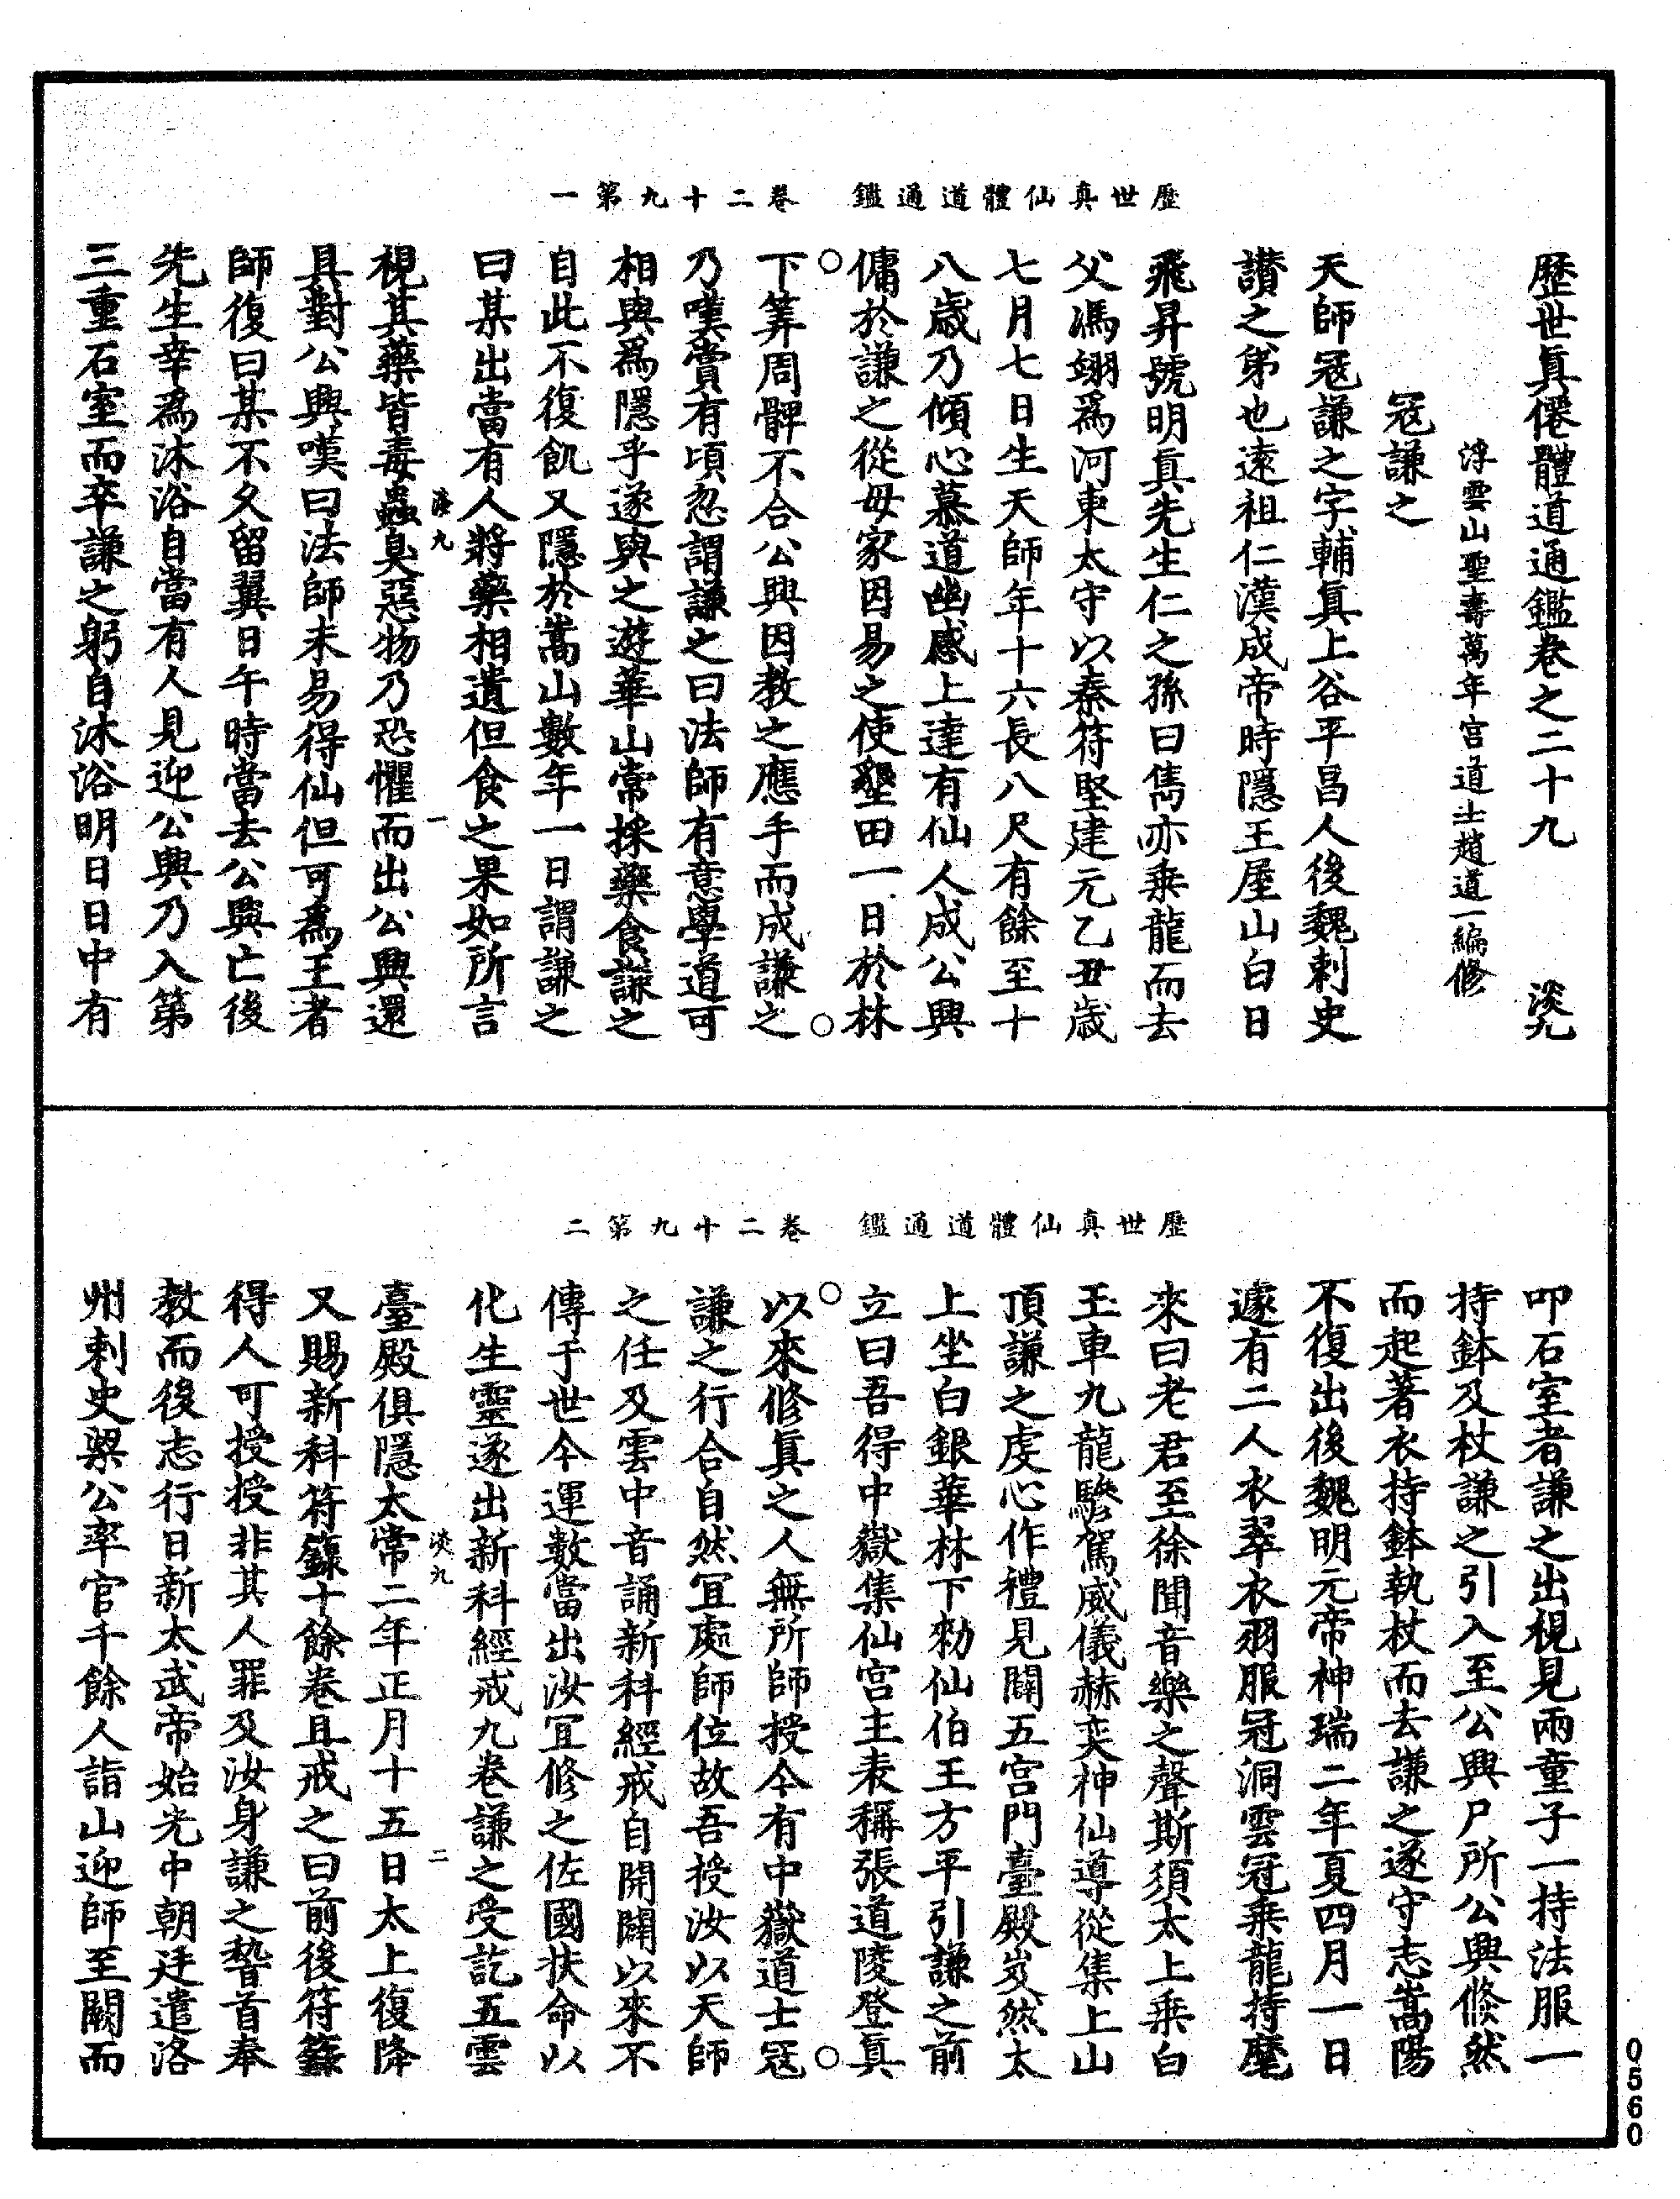 歷世真仙體道通鑑 卷二十九第一
歷世眞僊體道通鑑卷之二十九 淡九
浮雲山聖壽萬年宫道士趙道一編修
冦謙之
天師冦謙之字輔眞上谷平昌人後魏刺史
讃之弟也遠祖仁漢成帝時隱王屋山白日
飛昇號明眞先生仁之孫曰雋亦乗龍而去
父馮翊爲河東太守以秦符堅建元乙丑歳
七月七日生天師年十六長八尺有餘至十
八歳乃傾心慕道幽感上達有仙人成公興
傭於謙之從母家因易之使墾田一日於林
下筭周髀不合公興因教之應手而成謙之
乃嘆賞有頃忽謂謙之曰法師有意學道可
相與爲隱乎遂與之遊華山常採藥食謙之
自此不復飢又隱於嵩山數年一日謂謙之
曰某出當有人將藥相遺但食之果如所言
淡九 一
視其藥皆毒蟲臭惡物乃恐懼而出公興還
具對公興嘆曰法師未易得仙但可爲王者
師復曰某不久留翼日午時當去公興亡後
先生幸爲沐浴自當有人見迎公興乃入第
三重石室而卒謙之躬自沐浴明日日中有
歷世真仙體道通鑑 卷二十九第二
叩石室者謙之出視見兩童子一持法服一
持鉢及杖謙之引入至公興尸所公興倐然
而起著衣持鉢執杖而去謙之遂守志嵩陽
不復出後魏明元帝神瑞二年夏四月一日
遽有二人衣翠衣羽服冠洞雲冠乗龍持麾
來曰老君至徐聞音樂之聲斯須太上乗白
玉車九龍驂駕威儀赫奕神仙導從集上山
頂謙之虔心作禮見闢五宫門臺殿岌然太
上坐白銀華林下勑仙伯王方平引謙之前
立曰吾得中嶽集仙宫主表稱張道陵登眞
以來修眞之人無所師授今有中嶽道士冦
謙之行合自然宜處師位故吾授汝以天師
之任及雲中音誦新科經戒自開闢以來不
傳于世今運數當出汝宜修之佐國扶命以
化生靈遂出新科經戒九卷謙之受訖五雲
淡九 二
臺殿俱隱太常二年正月十五日太上復降
又賜新科符籙十餘卷且戒之曰前後符籙
得人可授授非其人罪及汝身謙之𥡴首奉
教而後志行日新太武帝始光中朝廷遣洛
州刺史梁公率官千餘人詣山迎師至闕而
0560